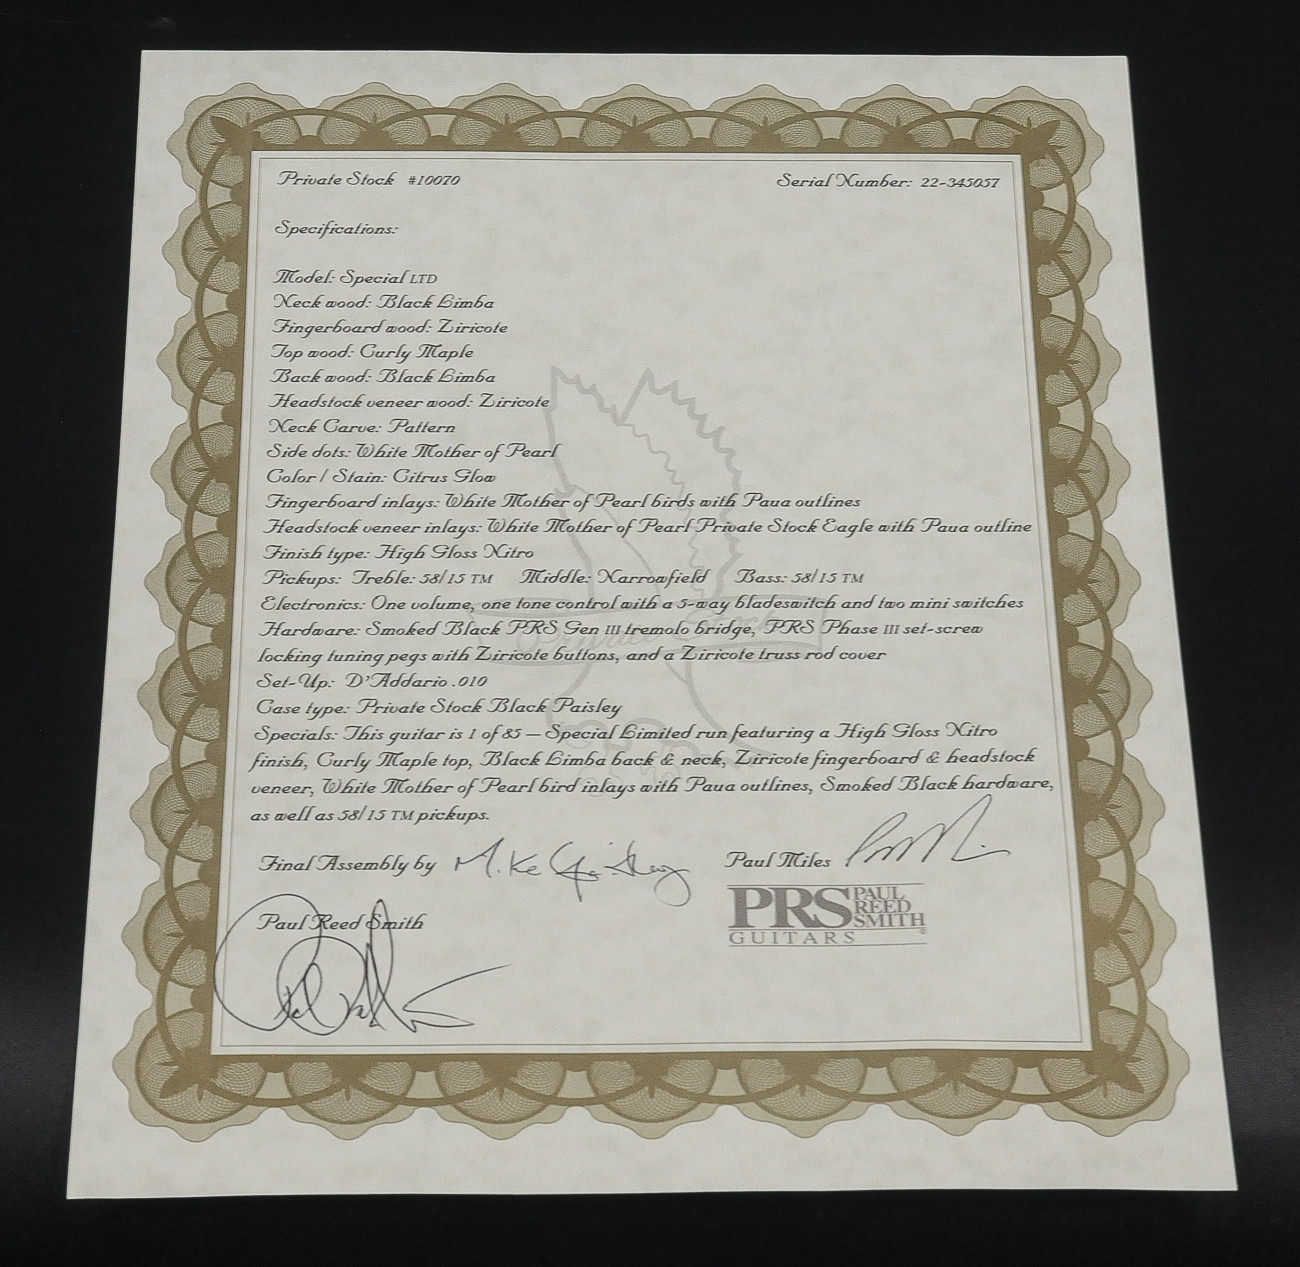 Private Stock #10070
Serial Number: 22-345057
Specifications:
Model: Special LTD
Neck wood: Black Limba
Fingerboard wood: Ziricote
Top wood: Curly Maple
Back wood: Black Limba
Headstock veneer wood: Ziricote
Neck Carve: Pattern
Side dots: White Mother of Pearl
Color / Stain: Citrus Glow
Fingerboard inlays: White Mother of Pearl birds with Paua outlines
Headstock veneer inlays: White Mother of Pearl Private Stock Eagle with Paua outline
Finish type: High Gloss Nitro
Pickups: Treble: 58/15 TM Middle: Narrowfield Bass: 58/15 TM
Electronics: One volume, one tone control with a 5-way bladeswitch and two mini switches
Hardware: Smoked Black PRS Gen III tremolo bridge, PRS Phase III set-screw
locking tuning pegs with Ziricote buttons, and a Ziricote truss rod cover
Set-Up: D'Addario .010
Case type: Private Stock Black Paisley
Specials: This guitar is 1 of 85 – Special Limited run featuring a High Gloss Nitro
finish, Curly Maple top, Black Limba back & neck, Ziricote fingerboard & headstock
veneer, White Mother of Pearl bird inlays with Paua outlines, Smoked Black hardware,
as well as 58/15 TM pickups.
Final Assembly by Mike
Paul Miles
Paul Reed Smith
PRS PAUL REED SMITH
GUITARS
Private Stock